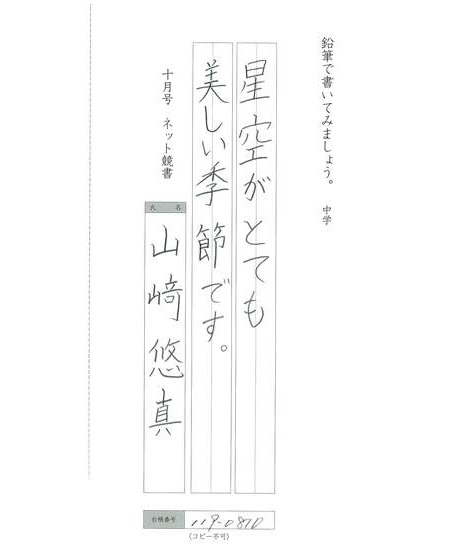 鉛筆で書いてみましょう。 中学
星空がとても
美しい季節です。
十月号 ネット競書
氏名
山﨑悠真
台帳番号 119-0810
(コピー不可)